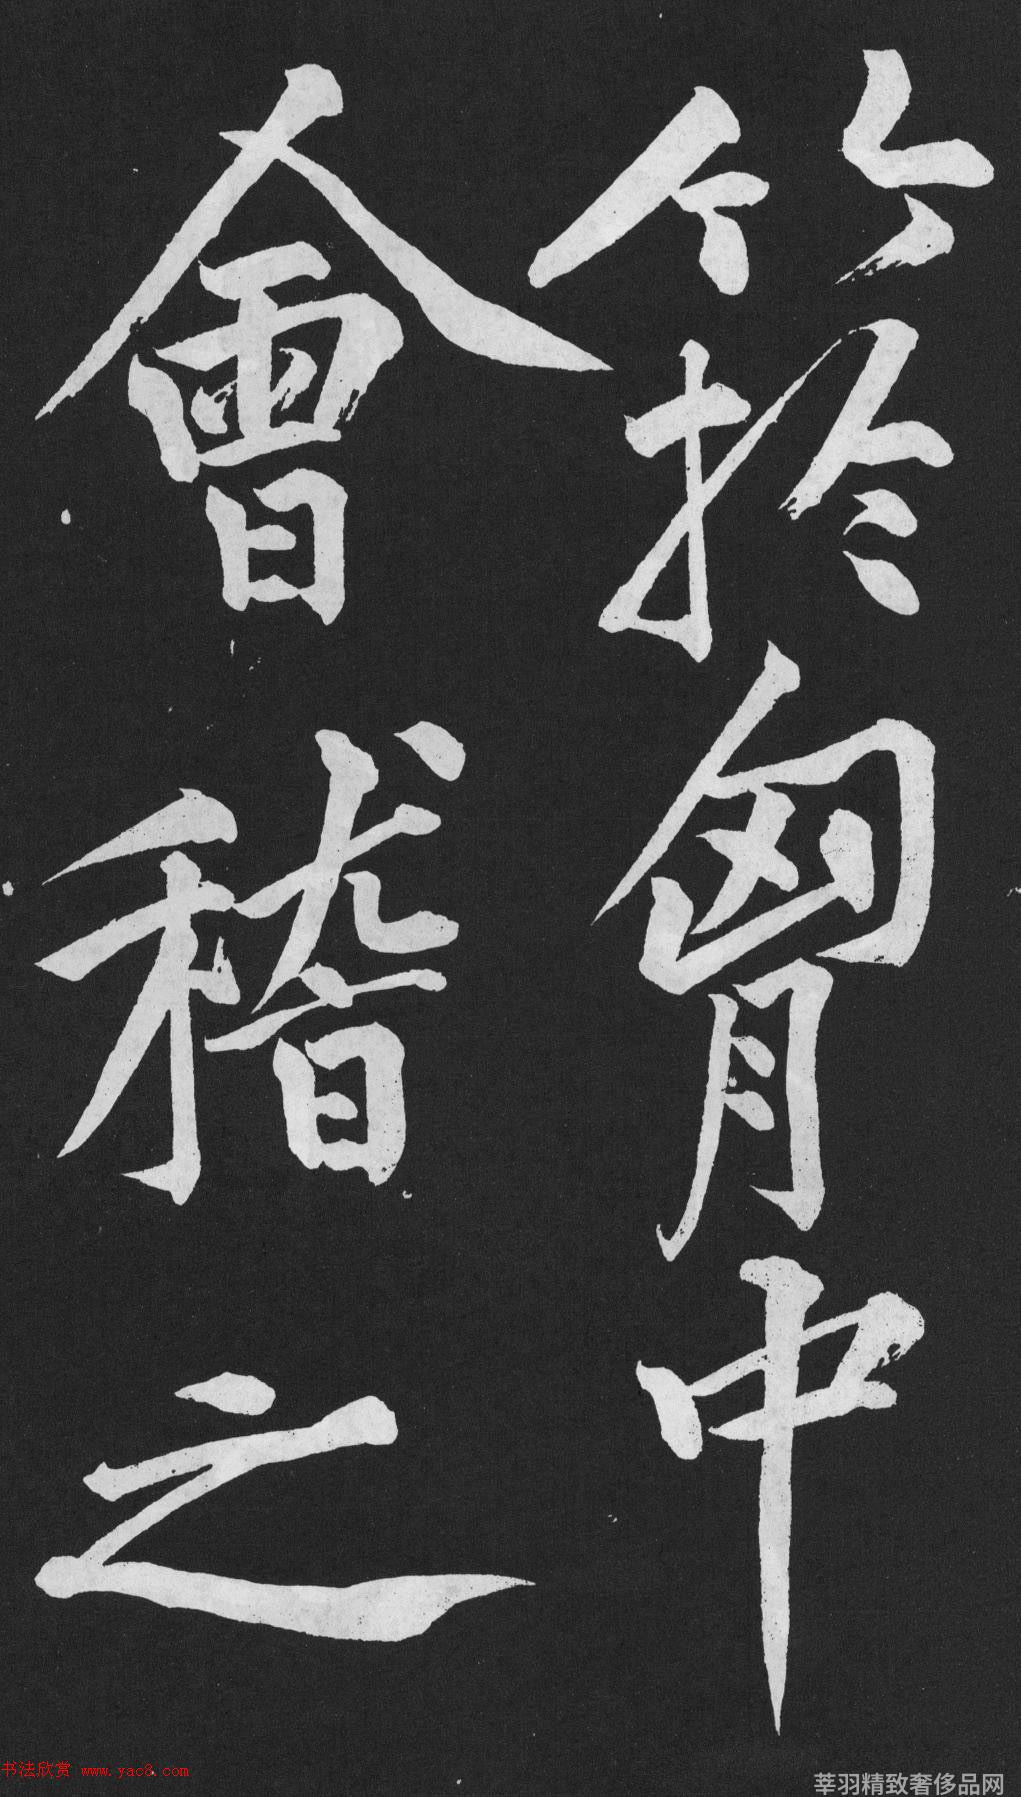 竹於胷中
會稽之
书法欣赏 www.yac8.com
莘羽精致奢侈品网